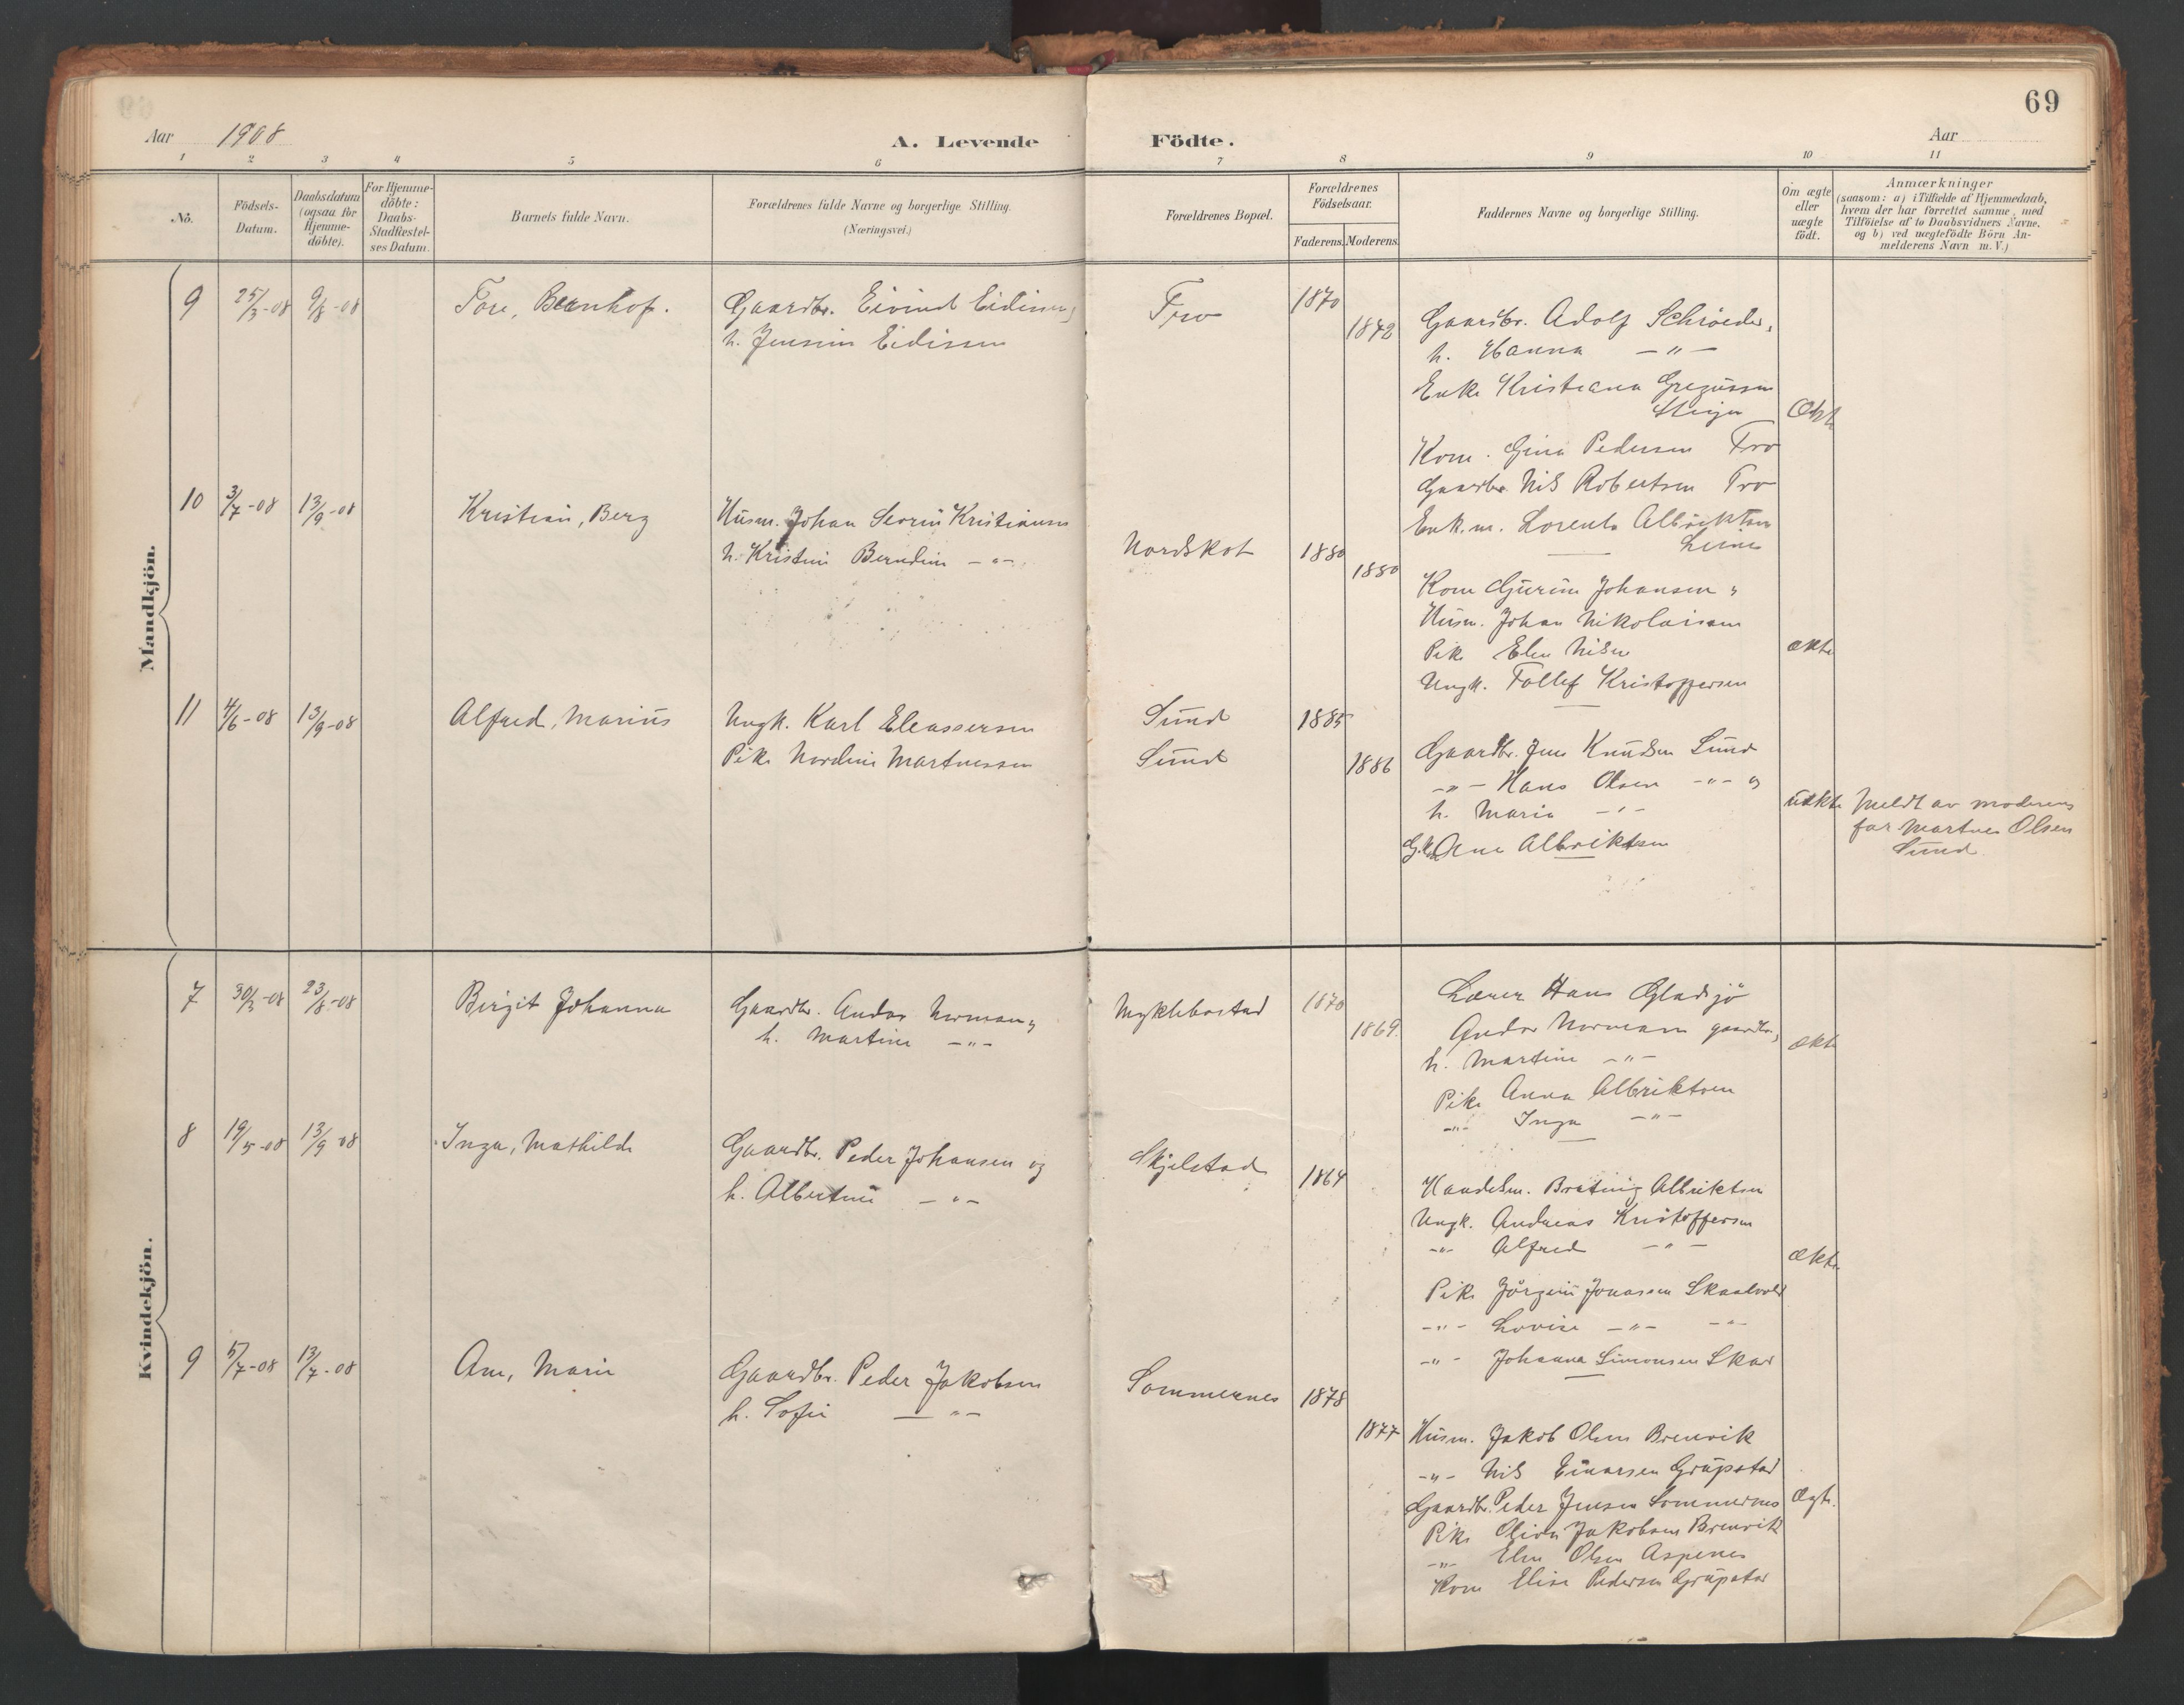 69
Aar 1908
A. Levende Födte.
Aar
1 2 3 4 5 6 7 8 9 10 11
No.
Födsels-
Datum.
Daabsdatum
(ogsaa for
Hjemme-
döbte).
For Hjemme-
döbte:
Daabs-
Stadfæstel-
ses Datum.
Barnets fulde Navn.
Forældrenes fulde Navne og borgerlige Stilling.
(Næringsvei.)
Forældrenes Bopæl.
Forældrenes
Födselsaar.
Faderens. Moderens.
Faddernes Navne og borgerlige Stilling.
Om ægte
eller
uægte
födt.
Anmærkninger
(saasom: a) i Tilfælde af Hjemmedaab,
hvem der har forrettet samme, med
Tilföielse af to Daabsvidners Navne,
og b) ved uægtefödte Börn An-
melderens Navn m. V.)
Mandkjön.
9 25/3-08 9/8-08 Tore, Bernhof.
Gaardbr. Eivind Eidissen
h. Jensine Eidissen
Tro 1870
1872
Gaardbr. Adolf Schrøeder,
h. Hanna -"-
Enke Kristiana Gregussen
Kone. Gina Pedersen Tro
Gaardbr. Nils Robertsen Tro
Enk.m. Lorents Albriktsen
Leines
10 3/7-08 13/9-08 Kristian, Berg
Husm. Johan Sevrin Kristiansen
h. Kristine Berndine -"-
Nordskot 1880
1880
Kone Gjurine Johansen
Husm. Johan Nikolaisen
Pike Elen Nilsen
Ungk. Tollef Kristoffersen
ækte
11 4/6-08 13/9-08 Alfred, Marius
Ungk. Karl Eleassersen
Pike Nordine Martnessen
Sund 1885
Sund 1886
Gaardbr. Jens Knudsen Sund
-"- Hans Olsen -"- og
h. Marie -"-
Arne Albriktsen
uækte
Meldt av moderens
far Martnes Olsen
Sund
Kvindekjön.
7 30/3-08 23/8-08 Birgit Johanna
Gaardbr. Andor Norman,
h. Martine -"-
Myklebostad 1870
1869
Lærer Hans Gladsjø
Andor Normann gaardbr.,
h. Martine -"-
Pike Anna Albriktsen
-"- Inga -"-
ækte
8 19/5-08 13/9-08 Inga, Mathilde
Gaardbr. Peder Johansen og
h. Albertine -"-
Skjelstad 1864
Handelsm. Brating Albriktsen
Ungk. Andreas Kristoffersen
-"- Alfred -"-
Pike Jørgine Jonassen Skaalvold
-"- Lovise -"- -"-
-"- Johanna Simonsen Skar
ækte
9 5/7-08 13/7-08 Ane, Marie
Gaardbr. Peder Jakobsen
h. Sofie -"-
Sommernes 1878
1877
Husm. Jakob Olsen Brenvik
-"- Nils Einarsen Grüpstad
Gaardbr. Peder Jensen Sommernes
Pike Olivia Jakobsen Brenvik
-"- Elen Olsen Aspenes
Kone Elise Pedersen Grüpstad
Ægte.